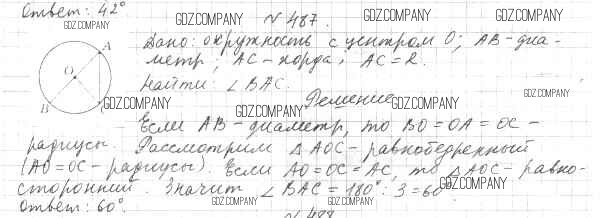 Ответ: 42° GDZ.COMPANY GDZ.COMPANY
GDZ.COMPANY № 487. GDZ.COMPANY
A Дано: окружность с центром O; AB-диа-
O метр; AC-хорда; AC=R.
Найти: ∠BAC.
B C GDZ.COMPANY GDZ.COMPANY Решение GDZ.COMPANY GDZ.COMPANY
Если AB-диаметр, то BO=OA=OC-
радиусы. Рассмотрим △AOC-равнобедренный
(AO=OC-радиусы). Если AO=OC=AC, то △AOC-равно-
сторонний. Значит ∠BAC=180°:3=60° GDZ.COMPANY
Ответ: 60°. GDZ.COMPANY GDZ.COMPANY
№ 488